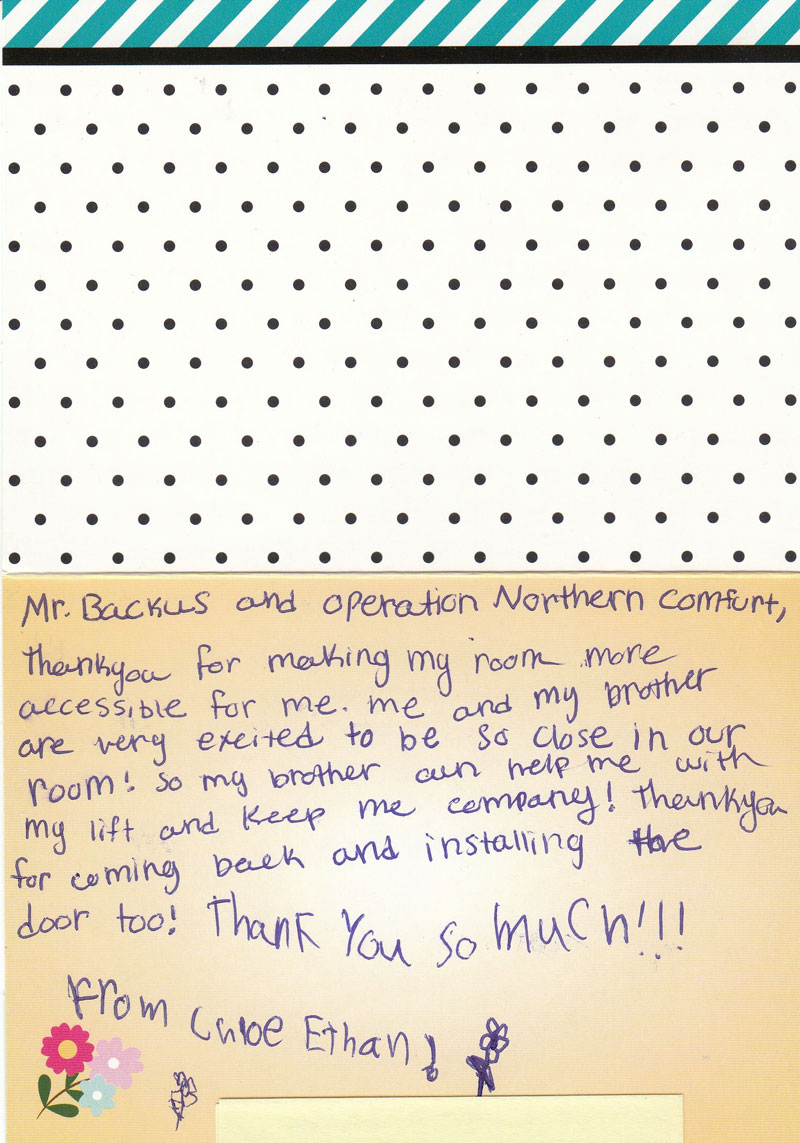 Mr. Backus and operation Northern comfurt,
thankyou for making my room more
accessible for me. me and my brother
are very excited to be so close in our
room! so my brother can help me with
my lift and keep me company! thankyou
for coming back and installing the
door too! Thank you so much!!!
From Chloe Ethan!